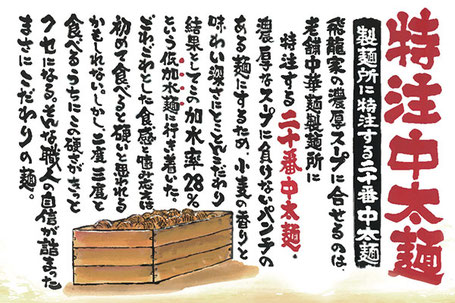 特注中太麺
製麺所に特注する二十番中太麺
飛龍家の濃厚スープに合せるのは、
老舗中華麺製麺所に
特注する二十番中太麺。
濃厚なスープに負けないパンチの
ある麺にするため、小麦の香りと
味わい、硬さにとことんこだわり
結果としての加水率28%
という低加水麺に行き着いた。
ごわごわとした食感と噛み応えは
初めて食べると硬いと思われる
かもしれない。しかし、二度三度と
食べるうちにこの硬さがきっと
クセになる。そんな職人の自信が詰まった
まさにこだわりの麺。